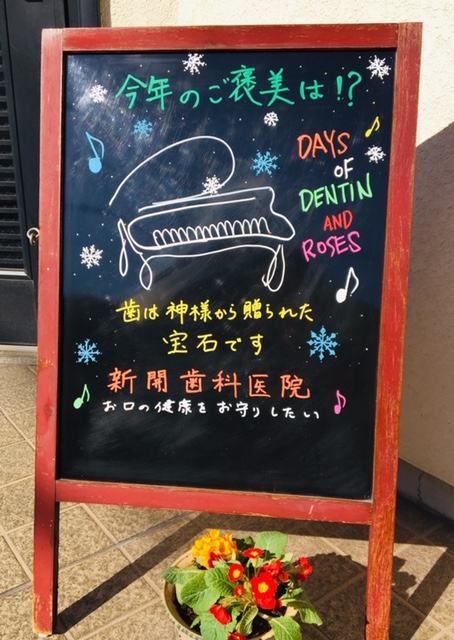 今年のご褒美は!?
DAYS
OF
DENTIN
AND
ROSES
歯は神様から贈られた
宝石です
新開歯科医院
お口の健康をお守りしたい